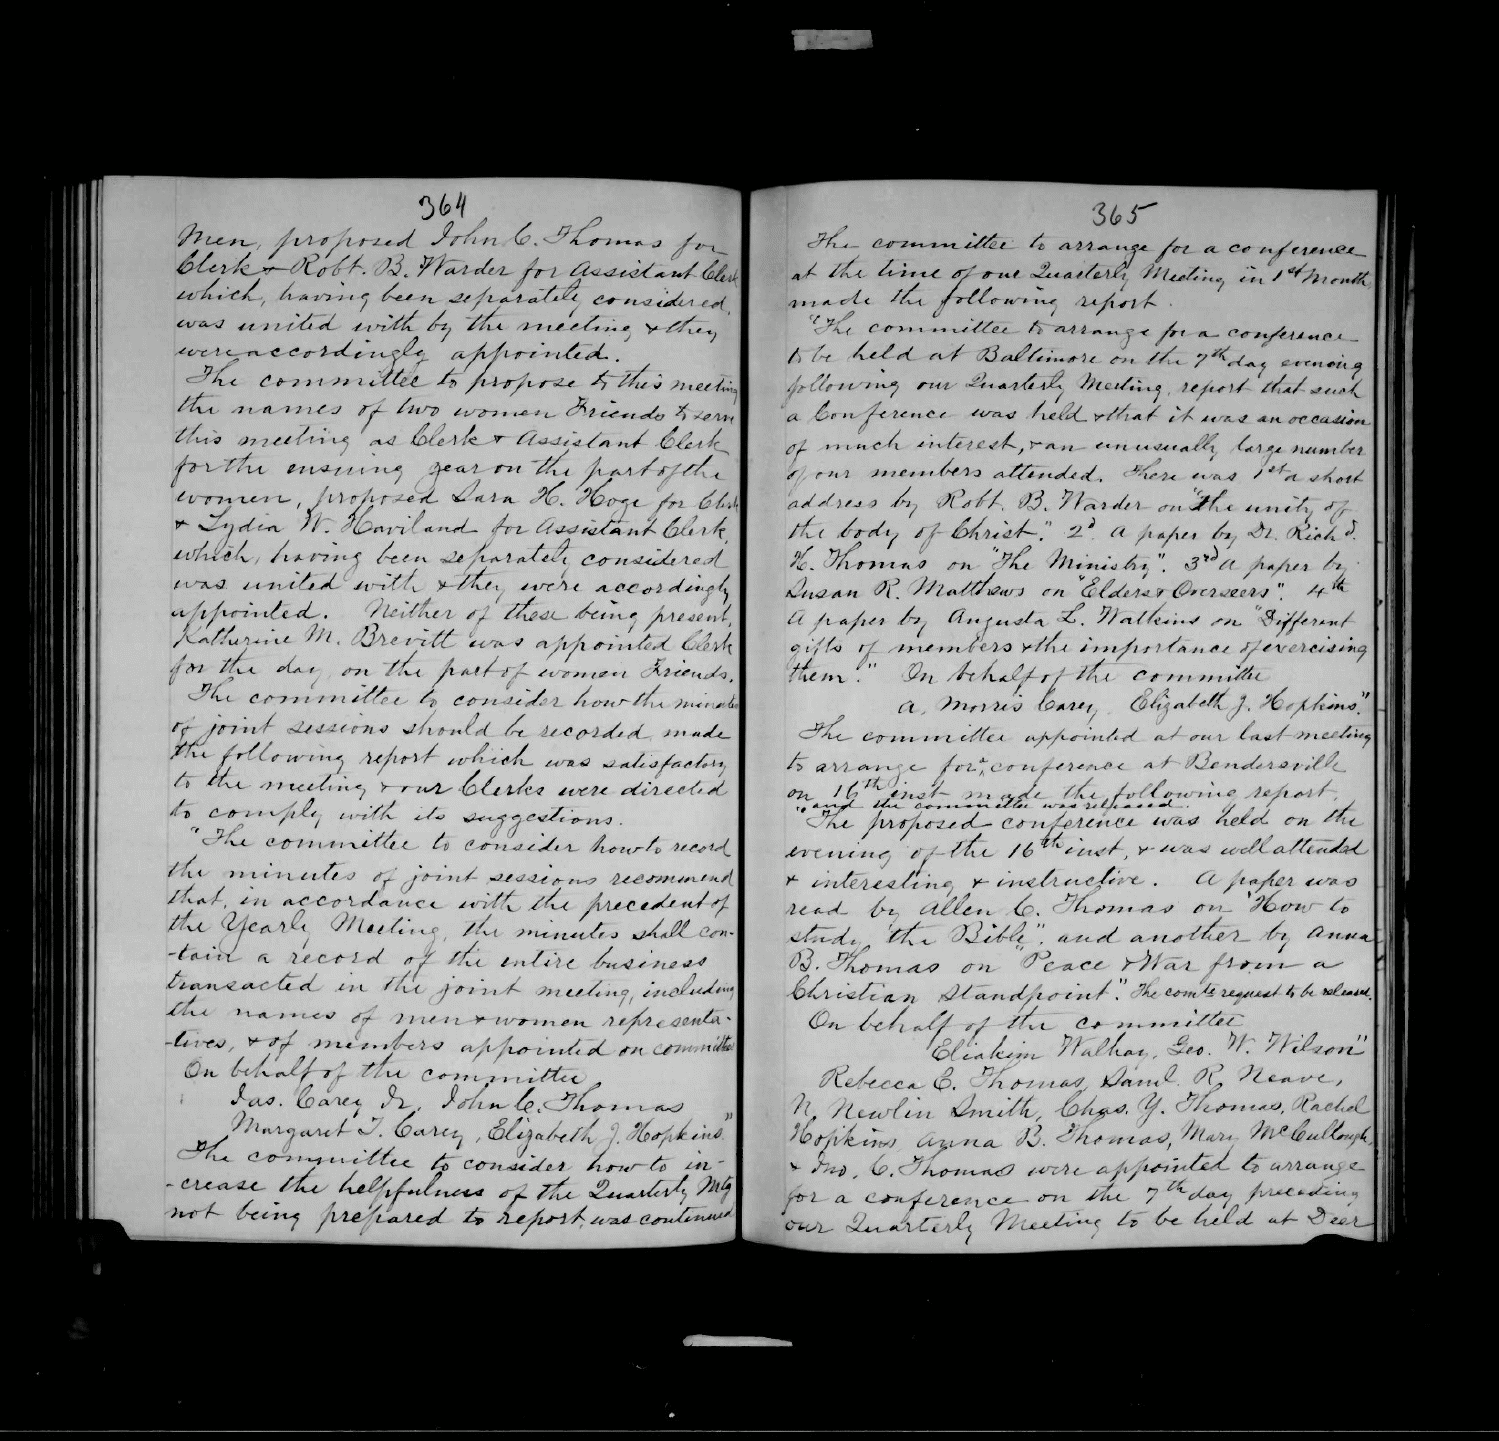 364
Men, proposed John C. Thomas for
Clerk & Robt. B. Warder for Assistant Clerk
which, having been separately considered,
was united with by the meeting, & they
were accordingly appointed.
The committee to propose to this meeting
the names of two women Friends to serve
this meeting as Clerk & Assistant Clerk
for the ensuing year on the part of the
women, proposed Sara H. Hoge for Clerk
& Lydia W. Haviland for Assistant Clerk,
which, having been separately considered
was united with & they were accordingly
appointed. Neither of these being present,
Katherine M. Brevitt was appointed Clerk
for the day, on the part of women Friends.
The committee to consider how the minutes
of joint sessions should be recorded, made
the following report which was satisfactory
to the meeting & our Clerks were directed
to comply with its suggestions.
"The committee to consider how to record
the minutes of joint sessions recommend
that, in accordance with the precedent of
the Yearly Meeting, the minutes shall con-
-tain a record of the entire business
transacted in the joint meeting, including
the names of men & women representa-
-tives, & of members appointed on committees
On behalf of the committee
Jas. Carey Jr. John C. Thomas
Margaret T. Carey, Elizabeth J. Hopkins."
The committee to consider how to in-
-crease the helpfulness of the Quarterly Mtg
not being prepared to report, was continued
365
The committee to arrange for a conference
at the time of our Quarterly Meeting in 1st month,
made the following report.
"The committee to arrange for a conference
to be held at Baltimore on the 7th day evening
following our Quarterly Meeting, report that such
a Conference was held & that it was an occasion
of much interest, & an unusually large number
of our members attended. There was 1st a short
address by Robt. B. Warder on "the unity of
the body of Christ." 2d. A paper by Dr. Richd.
H. Thomas on "The Ministry". 3rd A paper by
Susan R. Matthews on "Elders & Overseers". 4th
A paper by Augusta L. Watkins on "Different
gifts of members & the importance of exercising
them." On behalf of the committee
A. Morris Carey, Elizabeth J. Hopkins."
The committee appointed at our last meeting
to arrange for a conference at Bendersville
on 16th inst made the following report,
and the committee was released.
"The proposed conference was held on the
evening of the 16th inst, & was well attended
& interesting & instructive. A paper was
read by Allen C. Thomas on "How to
study the Bible", and another by Anna
B. Thomas on "Peace & War from a
Christian Standpoint". The comte request to be released.
On behalf of the committee
Eliakim Walhay, Geo. W. Wilson"
Rebecca E. Thomas, Saml. R. Neave,
N. Newlin Smith, Chas. Y. Thomas, Rachel
Hopkins, Anna B. Thomas, Mary McCullough,
& Jno. C. Thomas were appointed to arrange
for a conference on the 7th day preceding
our Quarterly Meeting to be held at Deer